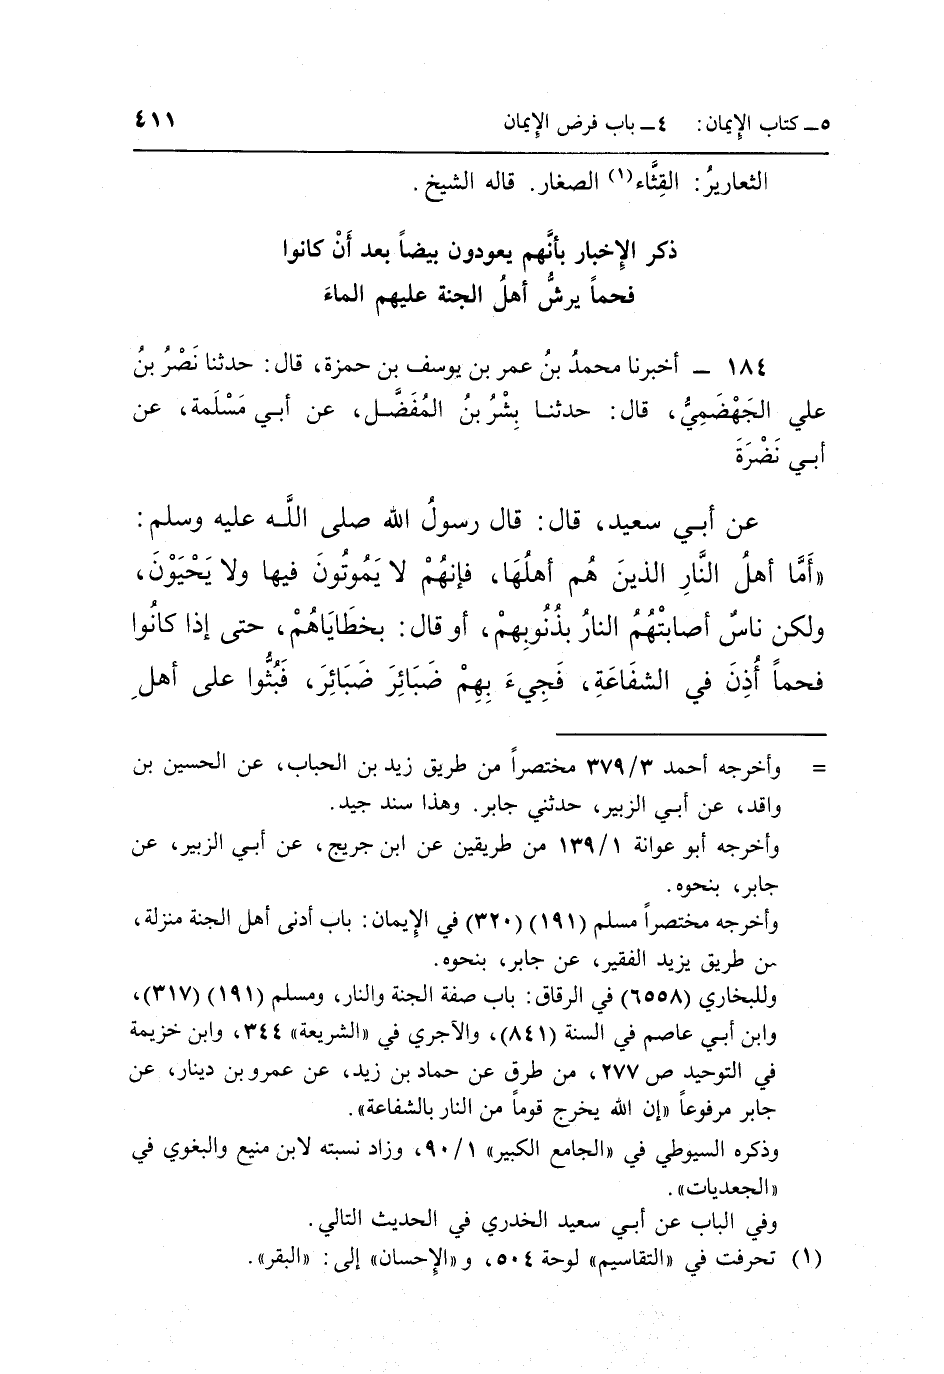 ٥ـ كتاب الإيمان: ٤ـ باب فرض الإيمان ٤١١
الثعاريرُ: القِثَّاء(١) الصغار. قاله الشيخ.
ذكر الإخبار بأنَّهم يعودون بيضاً بعد أَنْ كانوا
فحماً يرشُّ أهلُ الجنة عليهم الماءَ
١٨٤ ـ أخبرنا محمدُ بنُ عمر بن يوسف بن حمزة، قال: حدثنا نَصْرُ بنُ
علي الجَهْضَمِيُّ، قال: حدثنا بِشْرُ بنُ المُفَضَّل، عن أبي مَسْلَمة، عن
أبي نَضْرَةَ
عن أبي سعيد، قال: قال رسولُ الله صلى اللَّه عليه وسلم:
«أَمَّا أهلُ النَّارِ الذينَ هُم أهلُهَا، فإنهُمْ لا يَمُوتُونَ فيها ولا يَحْيَوْنَ،
ولكن ناسٌ أصابتْهُمُ النارُ بذُنُوبِهمْ، أو قال: بخطَايَاهُمْ، حتى إذا كانُوا
فحماً أُذِنَ في الشفَاعَةِ، فَجِيءَ بِهِمْ ضَبَائِرَ ضَبَائِرَ، فَبُثُّوا على أهلِ
= وأخرجه أحمد ٣٧٩/٣ مختصراً من طريق زيد بن الحباب، عن الحسين بن
واقد، عن أبي الزبير، حدثني جابر. وهذا سند جيد.
وأخرجه أبو عوانة ١٣٩/١ من طريقين عن ابن جريج، عن أبي الزبير، عن
جابر، بنحوه.
وأخرجه مختصراً مسلم (١٩١) (٣٢٠) في الإيمان: باب أدنى أهل الجنة منزلة،
من طريق يزيد الفقير، عن جابر، بنحوه.
وللبخاري (٦٥٥٨) في الرقاق: باب صفة الجنة والنار، ومسلم (١٩١) (٣١٧)،
وابن أبي عاصم في السنة (٨٤١)، والآجري في «الشريعة» ٣٤٤، وابن خزيمة
في التوحيد ص ٢٧٧، من طرق عن حماد بن زيد، عن عمرو بن دينار، عن
جابر مرفوعاً «إن الله يخرج قوماً من النار بالشفاعة».
وذكره السيوطي في «الجامع الكبير» ٩٠/١، وزاد نسبته لابن منيع والبغوي في
«الجعديات».
وفي الباب عن أبي سعيد الخدري في الحديث التالي.
(١) تحرفت في «التقاسيم» لوحة ٥٠٤، و«الإحسان» إلى: «البقر».